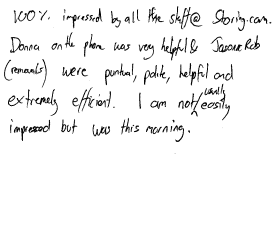 100% impressed by all the staff @ Storing.com.
Donna on the phone was very helpful & Jason & Rob
(removals) were puntual, polite, helpful and
extremely efficient. I am not usually easily
impressed but was this morning.